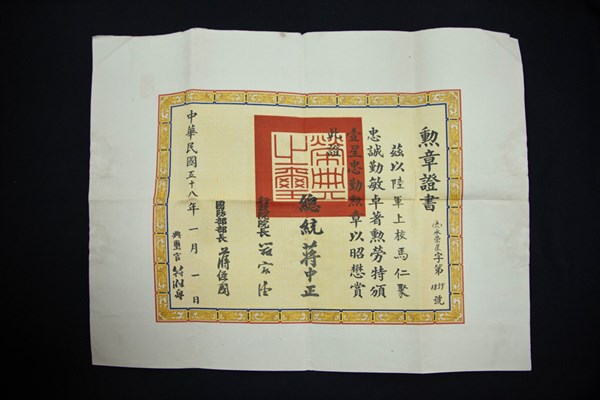 勲章證書
字第
號
茲以陸軍上校馬仁聚
忠誠勤敏卓著勲勞特頒
壹星忠勤勲章以昭懋賞
此證
榮典之璽
總統 蔣中正
行政院院長 嚴家淦
國防部部長 蔣經國
典璽官
中華民國五十八年一月一日